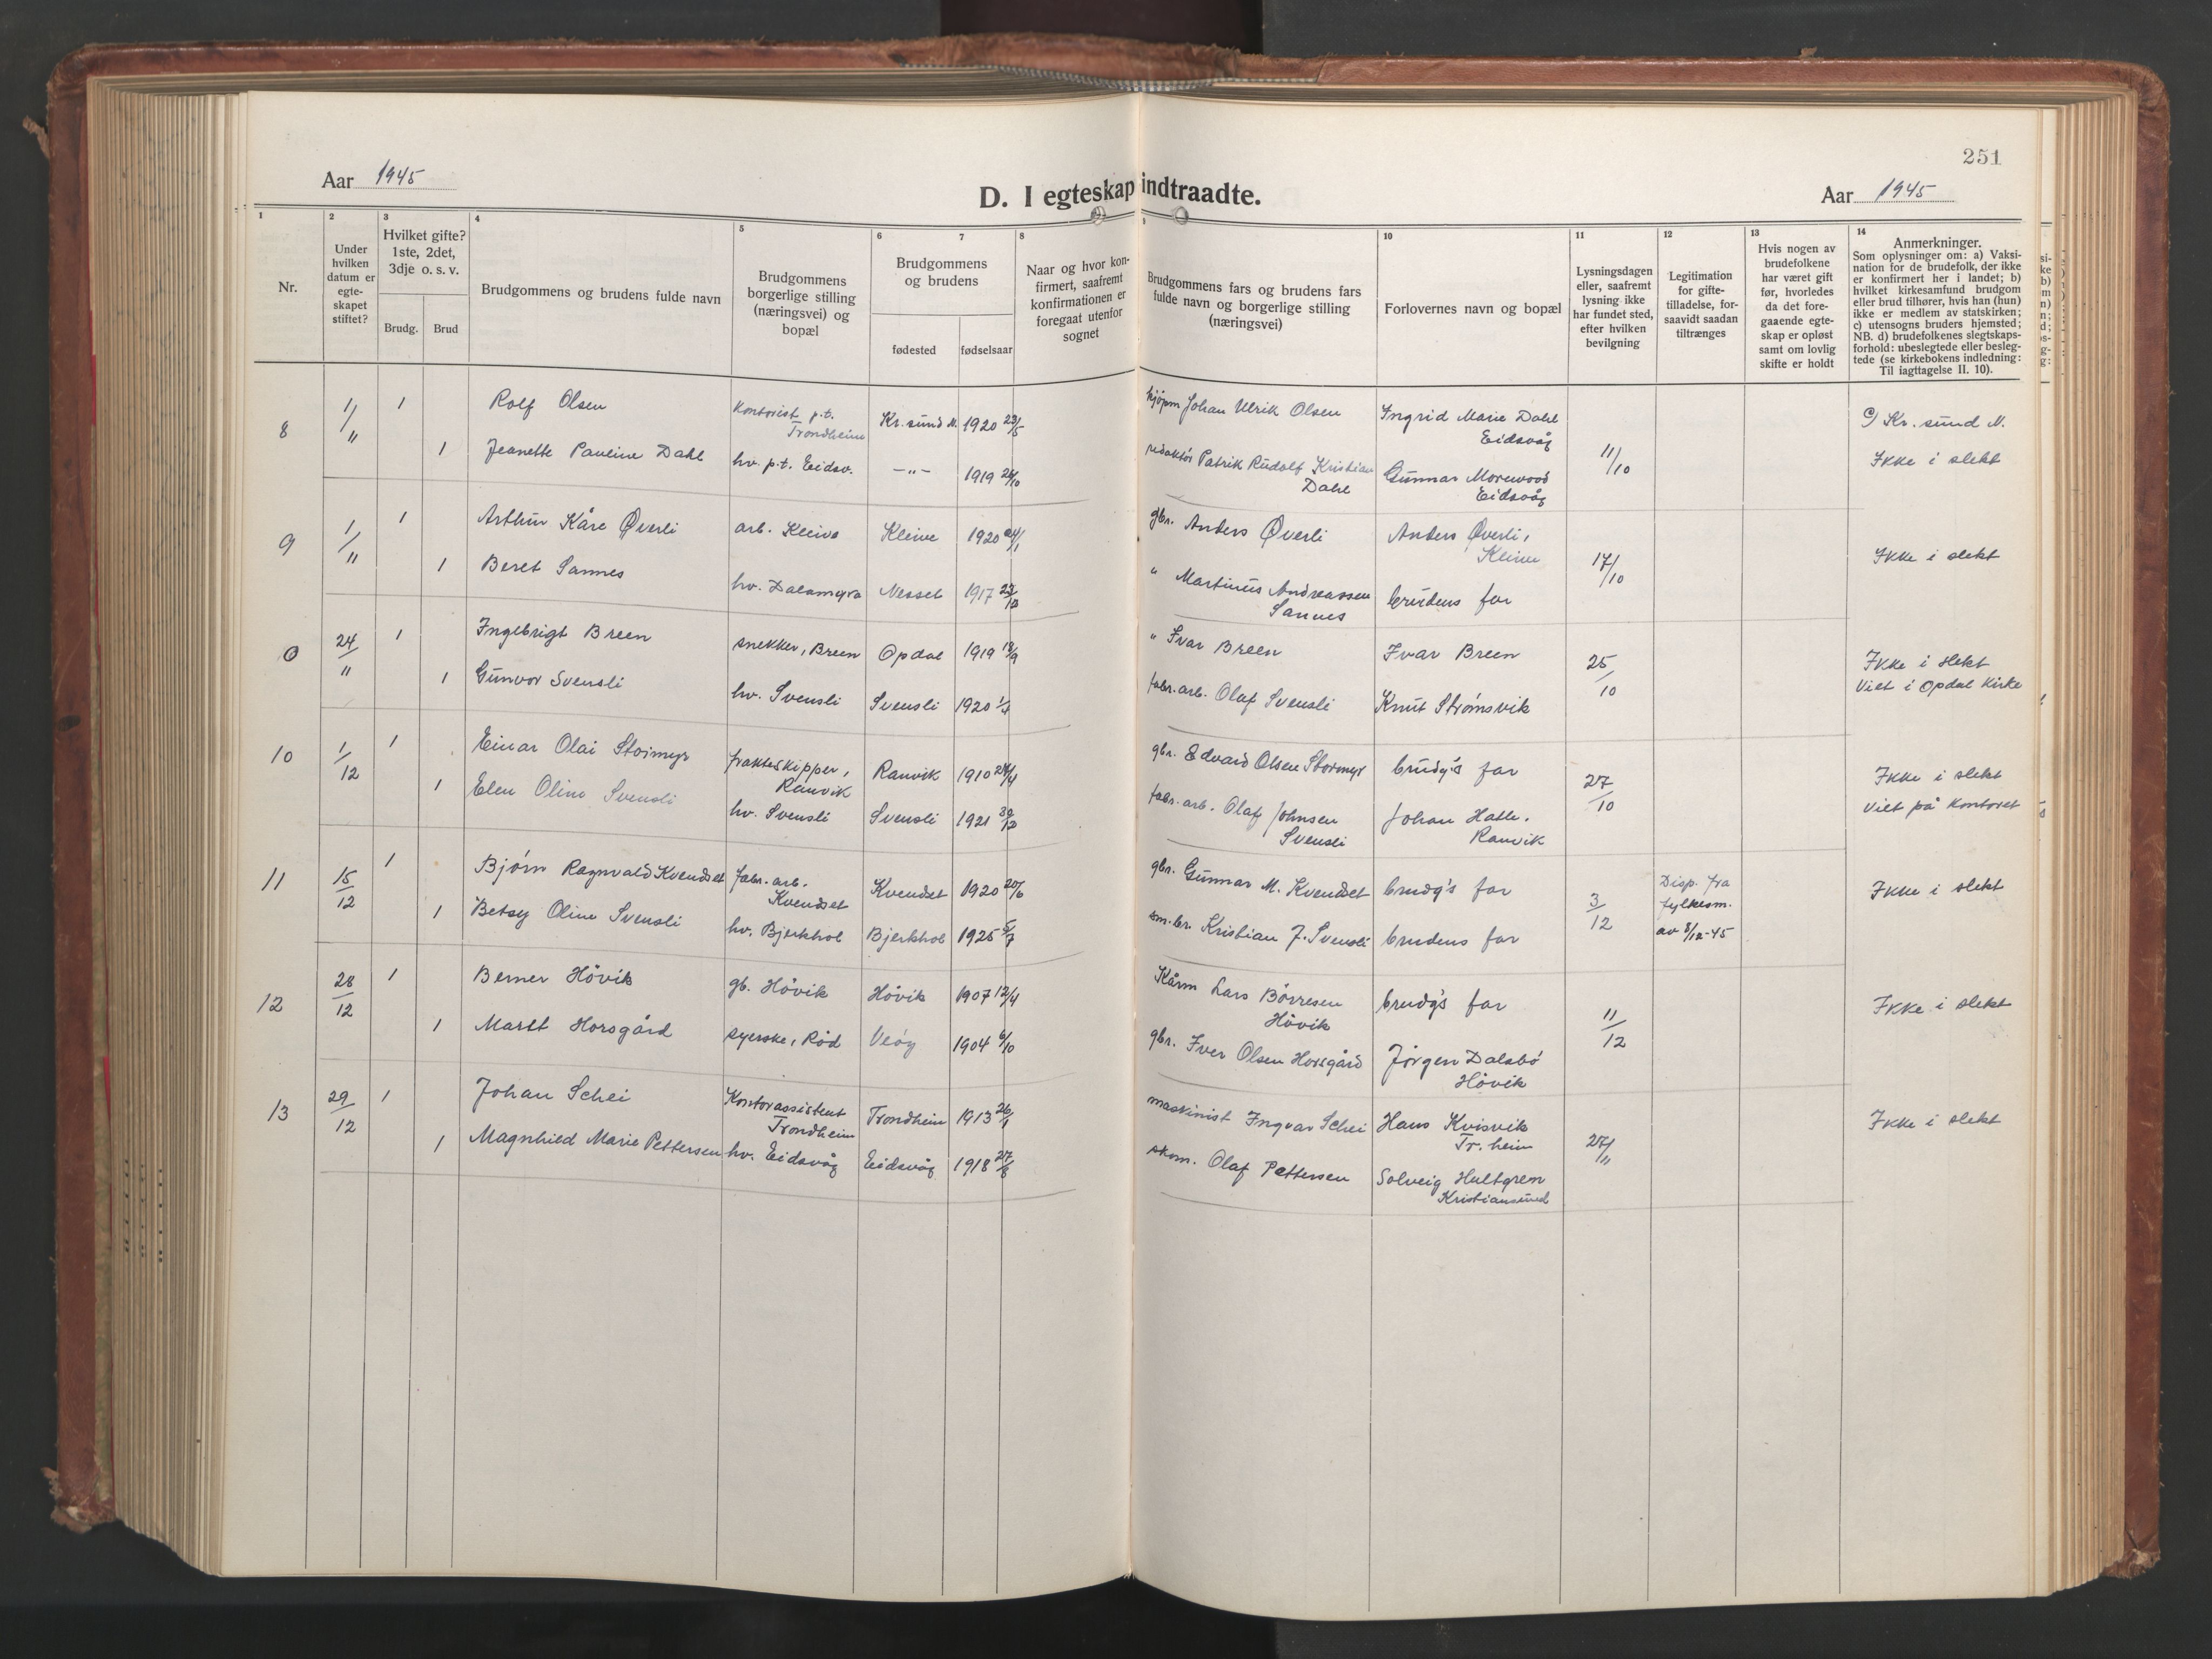 251
Aar 1945
D. I egteskap indtraadte.
Aar 1945
1
2
3
4
5
6
7
8
9
10
11
12
13
14
Nr.
Under hvilken datum er egte-skapet stiftet?
Hvilket gifte? 1ste, 2det, 3dje o. s. v.
Brudg.
Brud
Brudgommens og brudens fulde navn
Brudgommens borgerlige stilling (næringsvei) og bopæl
Brudgommens og brudens
fødested
fødselsaar
Naar og hvor kon-firmert, saafremt konfirmationen er foregaat utenfor sognet
Brudgommens fars og brudens fars fulde navn og borgerlige stilling (næringsvei)
Forlovernes navn og bopæl
Lysningsdagen eller, saafremt lysning ikke har fundet sted, efter hvilken bevilgning
Legitimation for gifte-tilladelse, for-saavidt saadan tiltrænges
Hvis nogen av brudefolkene har været gift før, hvorledes da det fore-gaaende egte-skap er opløst samt om lovlig skifte er holdt
Anmerkninger.
Som oplysninger om: a) Vaksi-nation for de brudefolk, der ikke er konfirmert her i landet; b) hvilket kirkesamfund brudgom eller brud tilhører, hvis han (hun) ikke er medlem av statskirken; c) utensogns bruders hjemsted; NB. d) brudefolkenes slegtskaps-forhold: ubeslegtede eller besleg-tede (se kirkebokens indledning: Til iagttagelse II. 10).
8 1/11 1 Rolf Olsen Kontorist p.t. Trondheim Kr.sund N. 1920 23/5 kjøpm Johan Ulrik Olsen Ingrid Marie Dahl Eidsvåg 11/10 c) Kr. sund N.
1 Jeanette Pauline Dahl hv. p.t. Eidsv. —"— 1919 26/10 redaktør Patrik Rudolf Kristian Dahl Gunnar Morewood Eidsvåg Ikke i slekt
9 1/11 1 Arthur Kåre Øverli arb. Kleive Kleive 1920 24/1 gbr. Anders Øverli Anders Øverli, Kleive 17/10 Ikke i slekt
1 Beret Sannes hv. Dalamyra Nesset 1917 23/12 " Martinus Andreassen Sannes brudens far
0 24/11 1 Ingebrigt Breen snekker, Breen Opdal 1919 18/9 " Ivar Breen Ivar Breen 25/10 Ikke i slekt
1 Gunvor Svensli hv. Svensli Svensli 1920 1/4 fabr.arb. Olaf Svensli Knut Strømsvik Viet i Opdal Kirke
10 1/12 1 Einar Olai Stormyr frakteskipper, Ranvik Ranvik 1910 24/4 gbr. Edvard Olsen Stormyr brudg's far 27/10 Ikke i slekt
1 Elen Oline Svensli hv. Svensli Svensli 1921 30/12 fabr.arb. Olaf Johnsen Svensli Johan Hatle. Ranvik Viet på Kontoret
11 15/12 1 Bjørn Ragnvald Kvendset fabr.arb. Kvendset Kvendset 1920 20/6 gbr. Gunnar M. Kvendset brudg's far 3/12 Disp. fra fylkesm. av 8/12-45 Ikke i slekt
1 Betsy Oline Svensli hv. Bjerkhol Bjerkhol 1925 5/7 sm.br. Kristian J. Svensli brudens far
12 28/12 1 Berner Hövik gb. Hövik Hövik 1907 12/4 Kårm Lars Börresen Hövik brudg's far 11/12 Ikke i slekt
1 Marit Horsgård syerske, Rød Veöy 1904 6/10 gbr. Iver Olsen Horsgård Jörgen Dalsbö Hövik
13 29/12 1 Johan Schei Kontorassistent Trondheim Trondheim 1913 26/1 maskinist Ingvar Schei Hans Kvisvik Tr.heim 27/11 Ikke i slekt
1 Magnhild Marie Pettersen hv. Eidsvåg Eidsvåg 1918 27/8 skom. Olaf Pettersen Solveig Hultgren Kristiansund